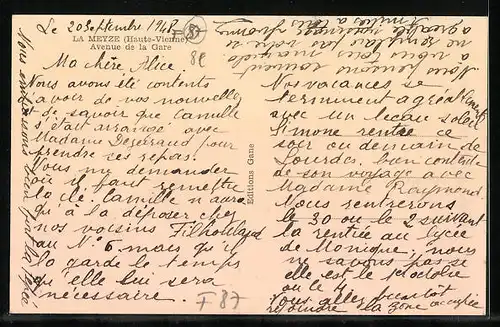 Le 20 Septembre 1948
F 87
LA MEYZE (Haute-Vienne)
Avenue de la Gare
Ma chère Alice
Nous avons été contents
d'avoir de vos nouvelles
et de savoir que Camille
s'était arrangé avec
Madame pour
prendre ses repas.
Nous me demander
où il faut remettre
la clé. Camille n'aura
qu'à la déposer chez
nos voisins
au N° 6. mais qu'il
la garde le temps
qu'elle lui sera
nécessaire.
F 87
Editions Gane
Nos vacances se
terminent agréablement
avec un beau soleil
Simone rentre ce
soir ou demain de
Lourdes, bien contente
de son voyage avec
Madame Raymond.
Nous rentrerons
le 30 ou le 2 suivant
la rentrée au lycée
de Monique, nous
ne savons pas si
elle est le 1er octobre
ou le 4
Vous allez bientôt
rejoindre la zone occupée
Nous pensons souvent
à vous tous